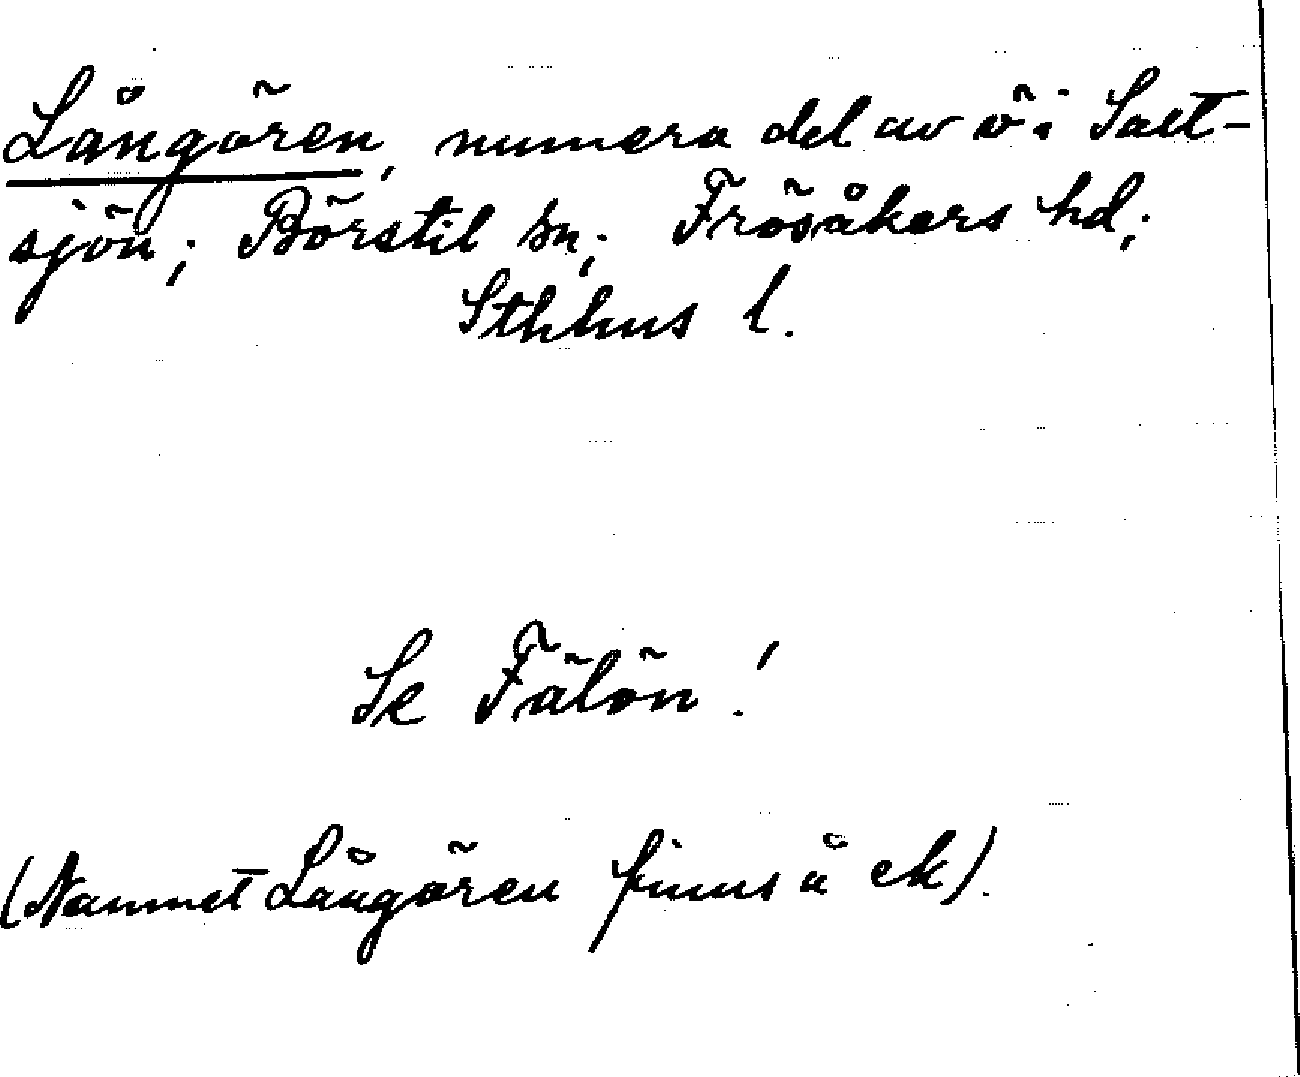 Långören, numera del av ö i Salt-
sjön; Börstil sn; Frösåkers hd;
Sthhus l.
Se Fälön!
(Namnet Långören finns å ek).